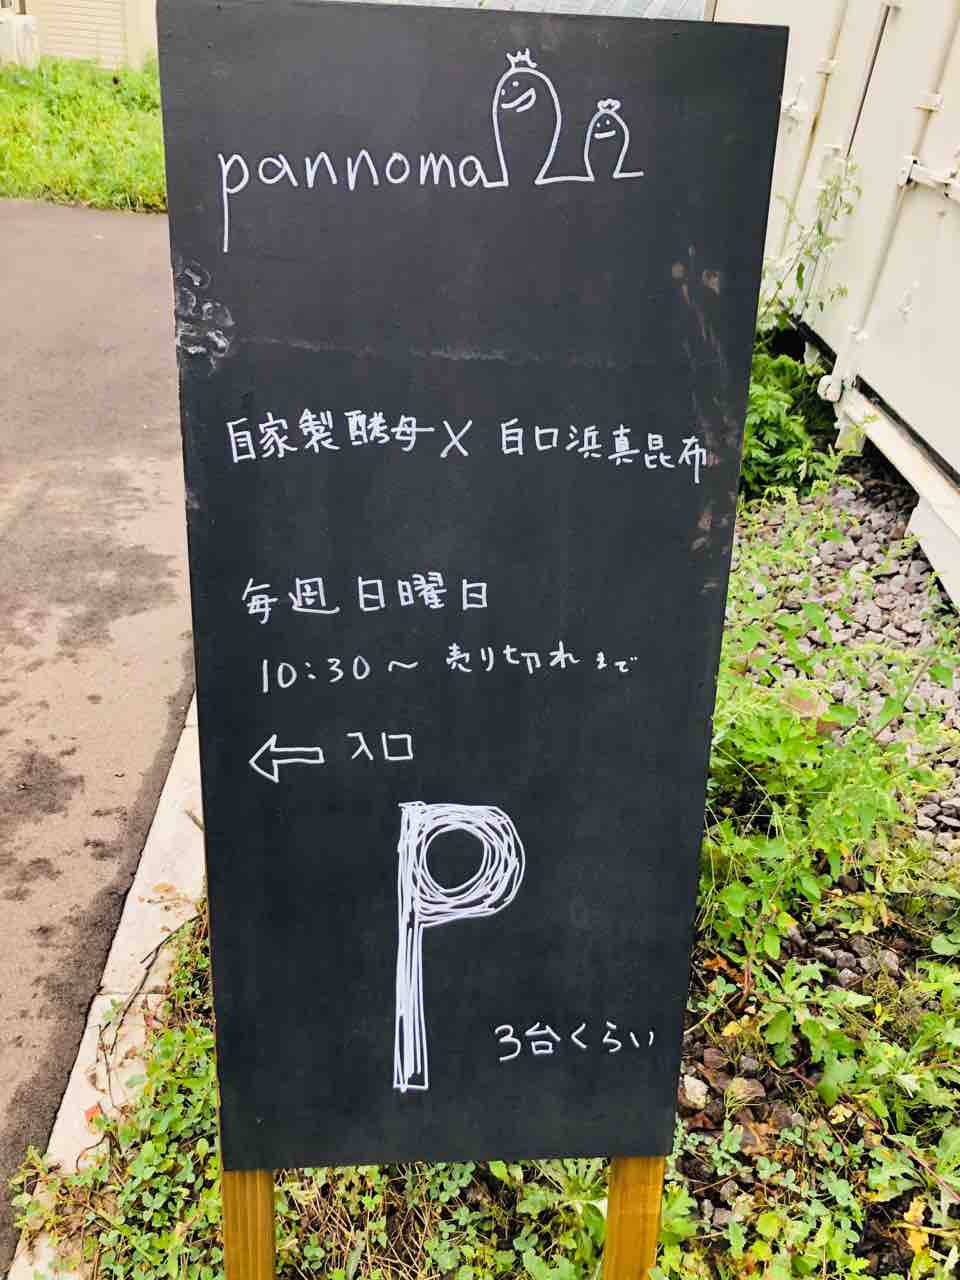 pannoma
自家製酵母×白口浜真昆布
毎週日曜日
10:30～売り切れまで
← 入口
P
3台くらい